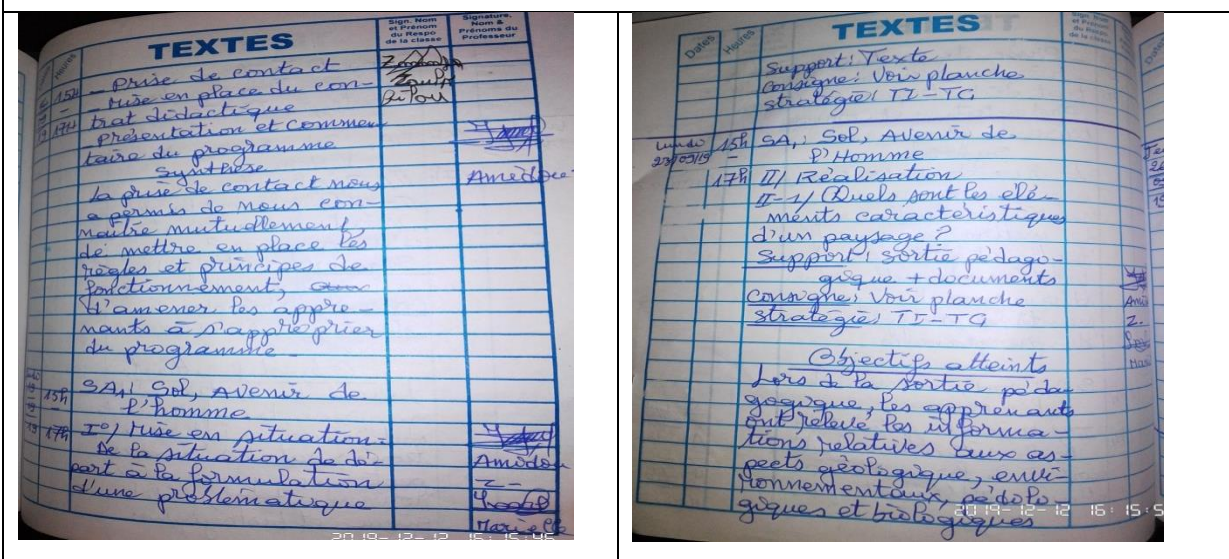 TEXTES
Sign. Nom
et Prénom
du Respo
de la classe
Signature,
Nom &
Prénoms du
Professeur
Heures
15H
-
17H
- Prise de contact
- Mise en place du con-
trat didactique
présentation et commen
taire du programme
Synthèse
La prise de contact nous
a permis de nous con-
naître mutuellement,
de mettre en place les
règles et principes de
fonctionnement,
d'amener les appre-
nants à s'approprier
du programme.
Amédou
15h
-
17h
SA1: Sol, Avenir de
l'homme
I°/ Mise en situation:
De la situation de dé-
part à la formulation
d'une problématique
Amidou
Z-
Marielle
2019-12-12 16:15:46
Dates
Heures
TEXTES
Sign. Nom
et Prénom
du Respo
de la classe
Dates
Support: Texte
Consigne: Voir planche
stratégie: TI-TG
Lundi
23/09/19
15h
-
17h
SA1: Sol, Avenir de
l'Homme
II/ Réalisation
II-1/ Quels sont les élé-
ments caractéristiques
d'un paysage?
Support: sortie pédago-
gique + documents
Consigne: Voir planche
stratégie: TI-TG
Objectifs atteints
Lors de la sortie péda
gogique, les apprenants
ont relevé les informa-
tions relatives aux as-
pects géologique, envi-
ronnementaux, pédolo-
giques et biologiques
2019-12-12 16:15:5